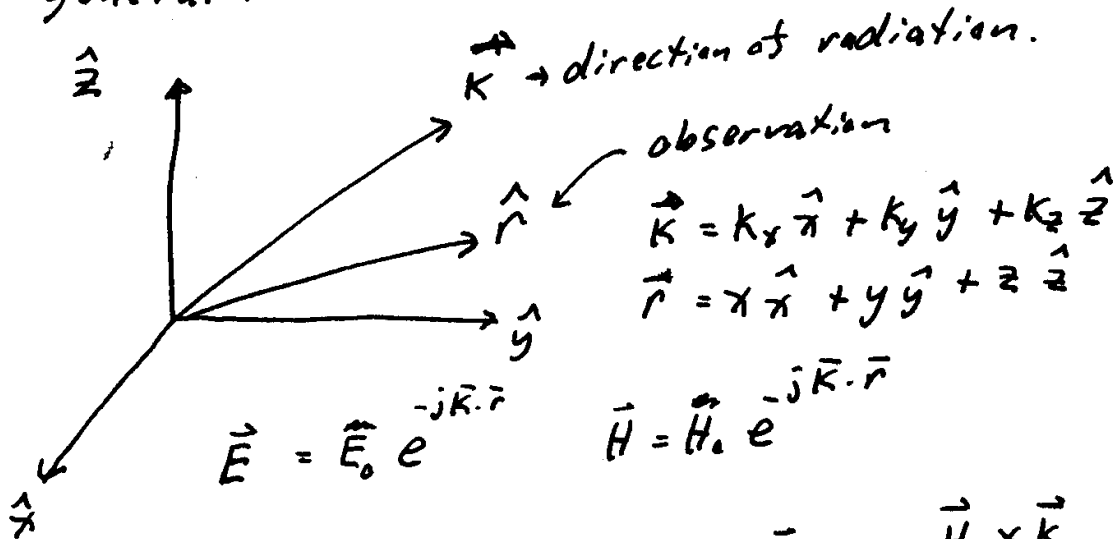 general
ẑ
k⃗ → direction of radiation.
observation
r̂
k⃗ = kₓ x̂ + k_y ŷ + k_z ẑ
r⃗ = x x̂ + y ŷ + z ẑ
ŷ
E⃗ = E⃗₀ e^{-j k̄·r̄} H⃗ = H⃗₀ e^{-j k̄·r̄}
x̂
H⃗ × k⃗